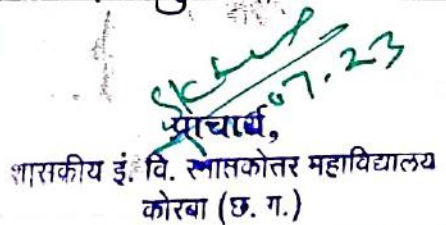 07.23
प्राचार्य,
शासकीय इं. वि. स्नासकोतर महाविद्यालय
कोरबा (छ. ग.)